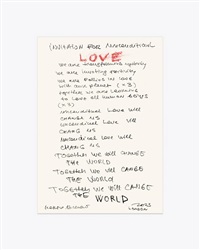 INVITATION FOR UNCONDITIONAL
LOVE
WE ARE TRANSFORMING
WE ARE
WE ARE IN LOVE
WITH OUR PLANET (=3)
TOGETHER WE ARE LEARNING
TO LOVE ALL HUMAN BEINGS
(=3)
UNCONDITIONAL LOVE WILL
CHANG US
UNCONDITIONAL LOVE WILL
CHANG US
UNCONDITIONAL LOVE WILL
CHANG US
TOGETHER WE WILL CHANGE
THE WORLD
TOGETHER WE WILL CANGE
THE WORLD
TOGETHER WE WILL CANGE
THE WORLD
2023